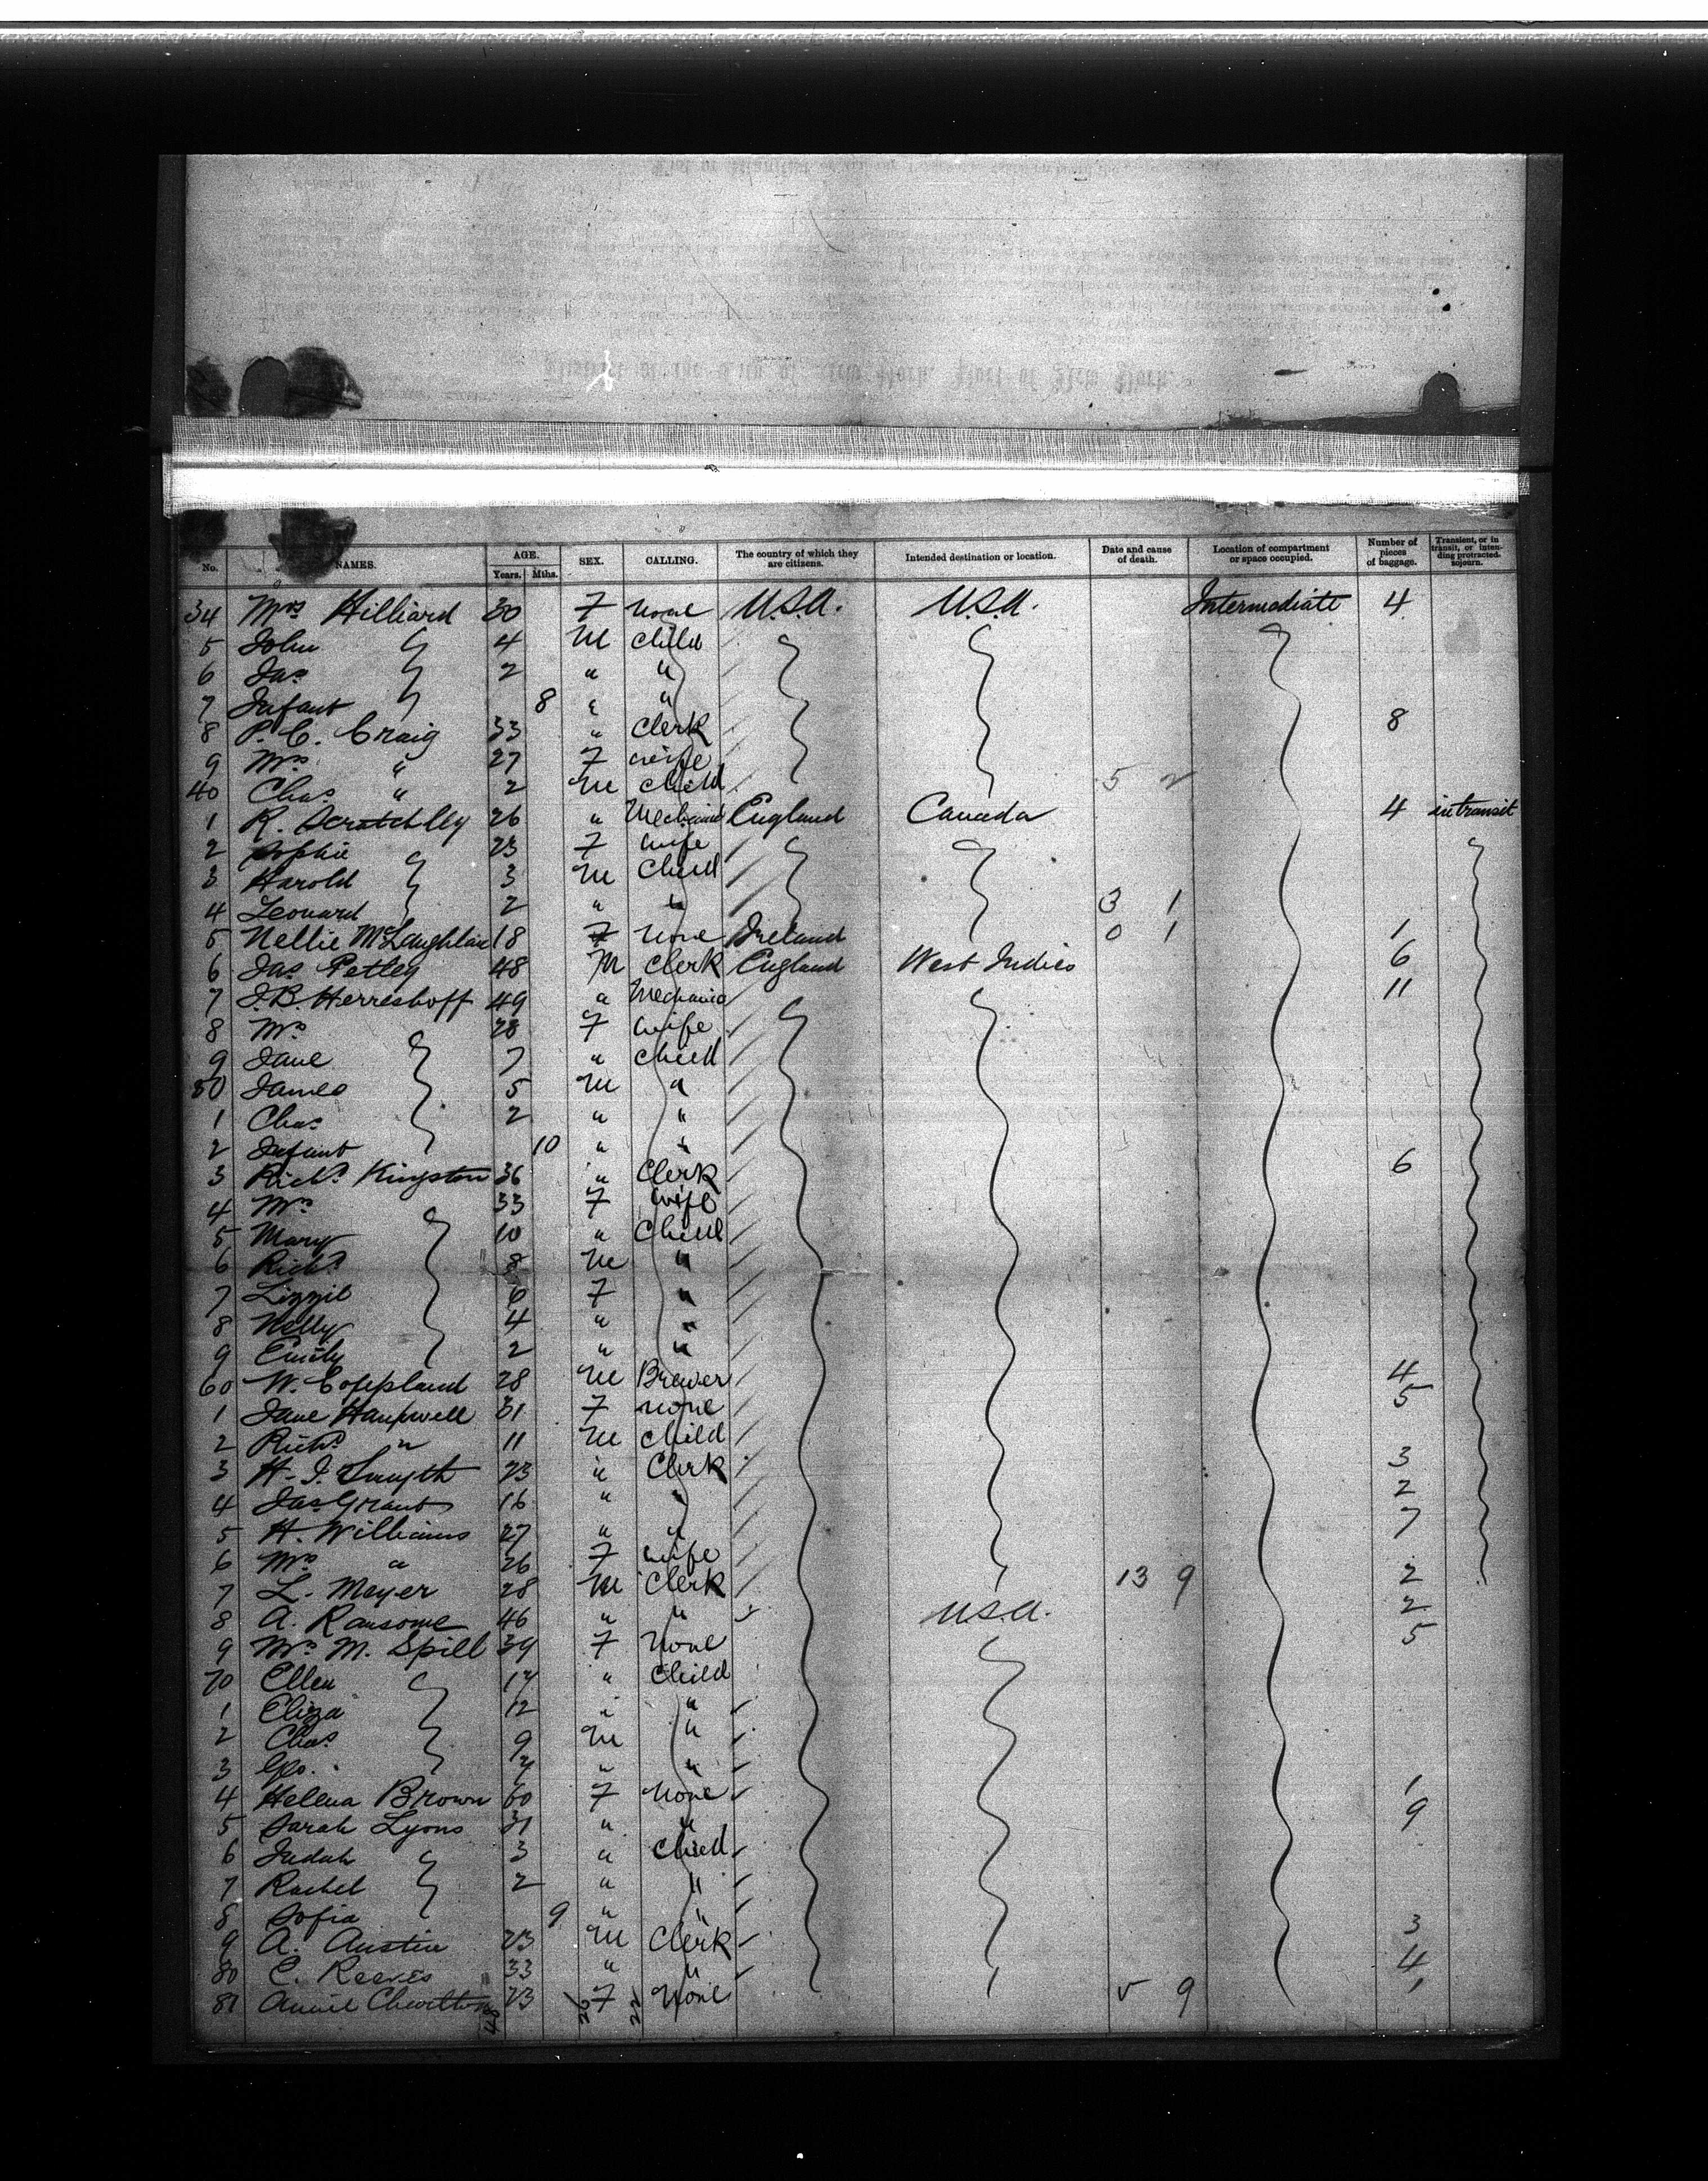 No. NAMES. AGE. Years. Mths. SEX. CALLING. The country of which they are citizens. Intended destination or location. Date and cause of death. Location of compartment or space occupied. Number of pieces of baggage. Transient, or in transit, or intending protracted sojourn.
34 Mrs Hilliard 30 F none U.S.A. U.S.A. Intermediate 4
5 John 4 M child
6 Jas 2 " "
7 Infant 8 " "
8 P. C. Craig 33 " Clerk 8
9 Mrs " 27 F wife
40 Chas " 2 M child 5 2
1 R. Scratchley 26 " Mechanic England Canada 4 in transit
2 Sophie 23 F wife
3 Harold 3 M Child
4 Leonard 2 " " 3 1
5 Nellie McLaughlin 18 F none Ireland 0 1 1
6 Jas Petley 48 M Clerk England West Indies 6
7 J.B. Herreshoff 49 " Mechanic 11
8 Mrs 28 F wife
9 Jane 7 " child
50 James 5 M "
1 Chas 2 " "
2 Infant 10 " "
3 Richd Kingston 36 " Clerk 6
4 Mrs 33 F wife
5 Mary 10 " Child
6 Richd 8 M "
7 Lizzie 6 F "
8 Nelly 4 " "
9 Emily 2 " "
60 W. Coppland 28 M Brewer 4
1 Jane 31 F none 5
2 Richd " 11 M child
3 H. J. Smyth 23 " Clerk 3
4 Jas Grant 16 " " 2
5 H. Williams 27 " " 7
6 Mrs " 26 F wife
7 L. Meyer 28 M Clerk 13 9 2
8 A. Ransome 46 " " U.S.A. 2
9 Mrs M. Spill 39 F none 5
70 Ellen 17 " Child
1 Eliza 12 " "
2 Chas 9 M "
3 Geo. 7 " "
4 Helena Brown 60 F none 1
5 Sarah Lyons 31 " " 9
6 Judah 3 " Child
7 Rachel 2 " "
8 Sofia 9 " "
9 A. Austin 23 M Clerk 3
80 C. Reeves 33 " " 4
81 Annie 23 F none 9 1
26 22